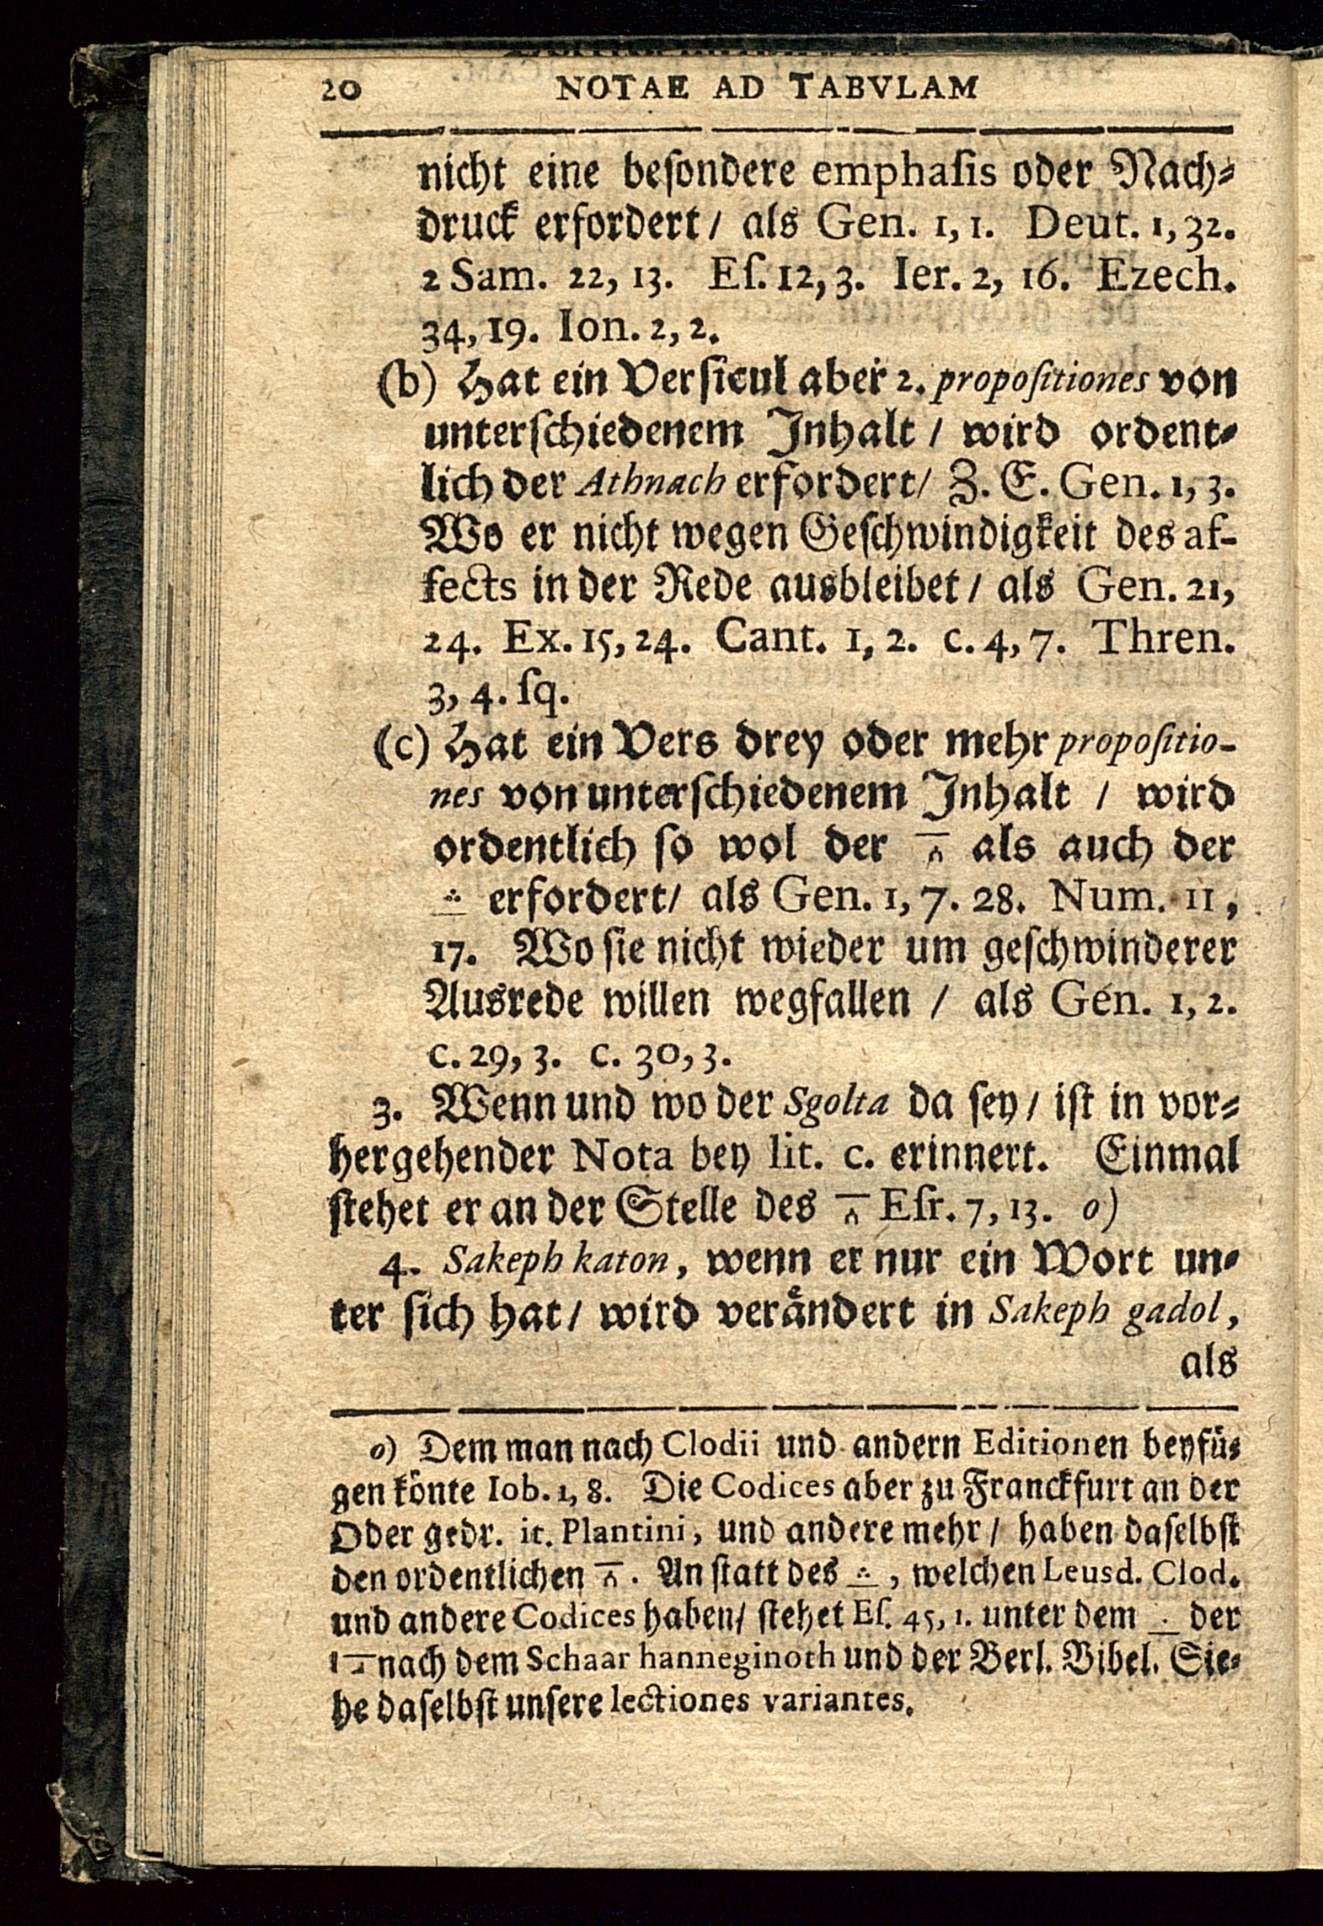 20 NOTAE AD TABVLAM
nicht eine beſondere emphaſis oder Nach⸗
druck erfordert / als Gen. 1, 1. Deut. 1, 32.
2 Sam. 22, 13. Eſ. 12, 3. Ier. 2, 16. Ezech.
34, 19. Ion. 2, 2.
(b) Hat ein Verſicul aber 2. propoſitiones von
unterſchiedenem Inhalt / wird ordent⸗
lich der Athnach erfordert / Z. E. Gen. 1, 3.
Wo er nicht wegen Geſchwindigkeit des af-
fects in der Rede ausbleibet / als Gen. 21,
24. Ex. 15, 24. Cant. 1, 2. c. 4, 7. Thren.
3, 4. ſq.
(c) Hat ein Vers drey oder mehr propoſitio-
nes von unterſchiedenem Inhalt / wird
ordentlich ſo wol der ֑ als auch der
֒ erfordert / als Gen. 1, 7. 28. Num. 11,
17. Wo ſie nicht wieder um geſchwinderer
Ausrede willen wegfallen / als Gen. 1, 2.
c. 29, 3. c. 30, 3.
3. Wenn und wo der Sgolta da ſey / iſt in vor⸗
hergehender Nota bey lit. c. erinnert. Einmal
ſtehet er an der Stelle des ֑ Eſr. 7, 13. o)
4. Sakeph katon, wenn er nur ein Wort un⸗
ter ſich hat / wird veraͤndert in Sakeph gadol,
als
o) Dem man nach Clodii und andern Editionen beyfuͤ⸗
gen koͤnte Iob. 1, 8. Die Codices aber zu Franckfurt an der
Oder gedr. it. Plantini, und andere mehr / haben daſelbſt
den ordentlichen ֑. An ſtatt des ֒, welchen Leusd. Clod.
und andere Codices haben / ſtehet Eſ. 45, 1. unter dem der
nach dem Schaar hanneginoth und der Berl. Bibel. Sie⸗
he daſelbſt unſere lectiones variantes.